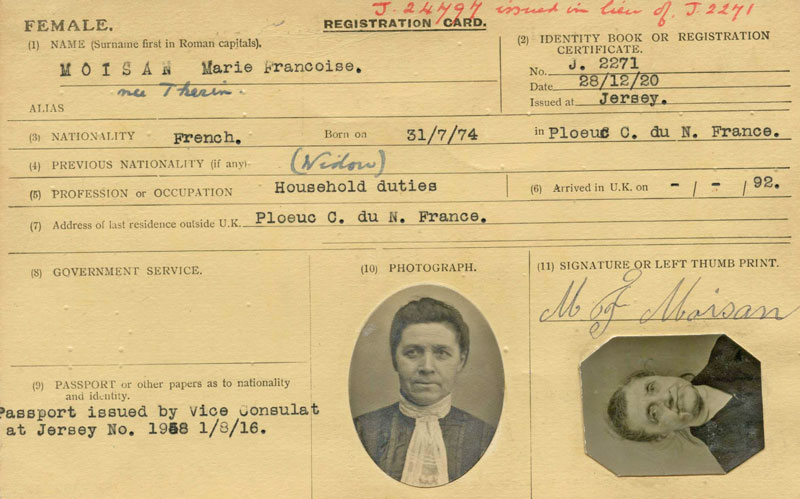 J. 24797 issued in lieu of J. 2271
FEMALE.
REGISTRATION CARD.
(1) NAME (Surname first in Roman capitals).
MOISAN Marie Francoise.
née Therin.
ALIAS
(2) IDENTITY BOOK OR REGISTRATION
CERTIFICATE.
No. J. 2271
Date 28/12/20
Issued at Jersey.
(3) NATIONALITY French. Born on 31/7/74 in Ploeuc C. du N. France.
(4) PREVIOUS NATIONALITY (if any) (Widow)
(5) PROFESSION or OCCUPATION Household duties
(6) Arrived in U.K. on - / - / 92.
(7) Address of last residence outside U.K. Ploeuc C. du N. France.
(8) GOVERNMENT SERVICE.
(10) PHOTOGRAPH.
(11) SIGNATURE OR LEFT THUMB PRINT.
M F Moisan
(9) PASSPORT or other papers as to nationality
and identity.
Passport issued by Vice Consulat
at Jersey No. 1958 1/8/16.